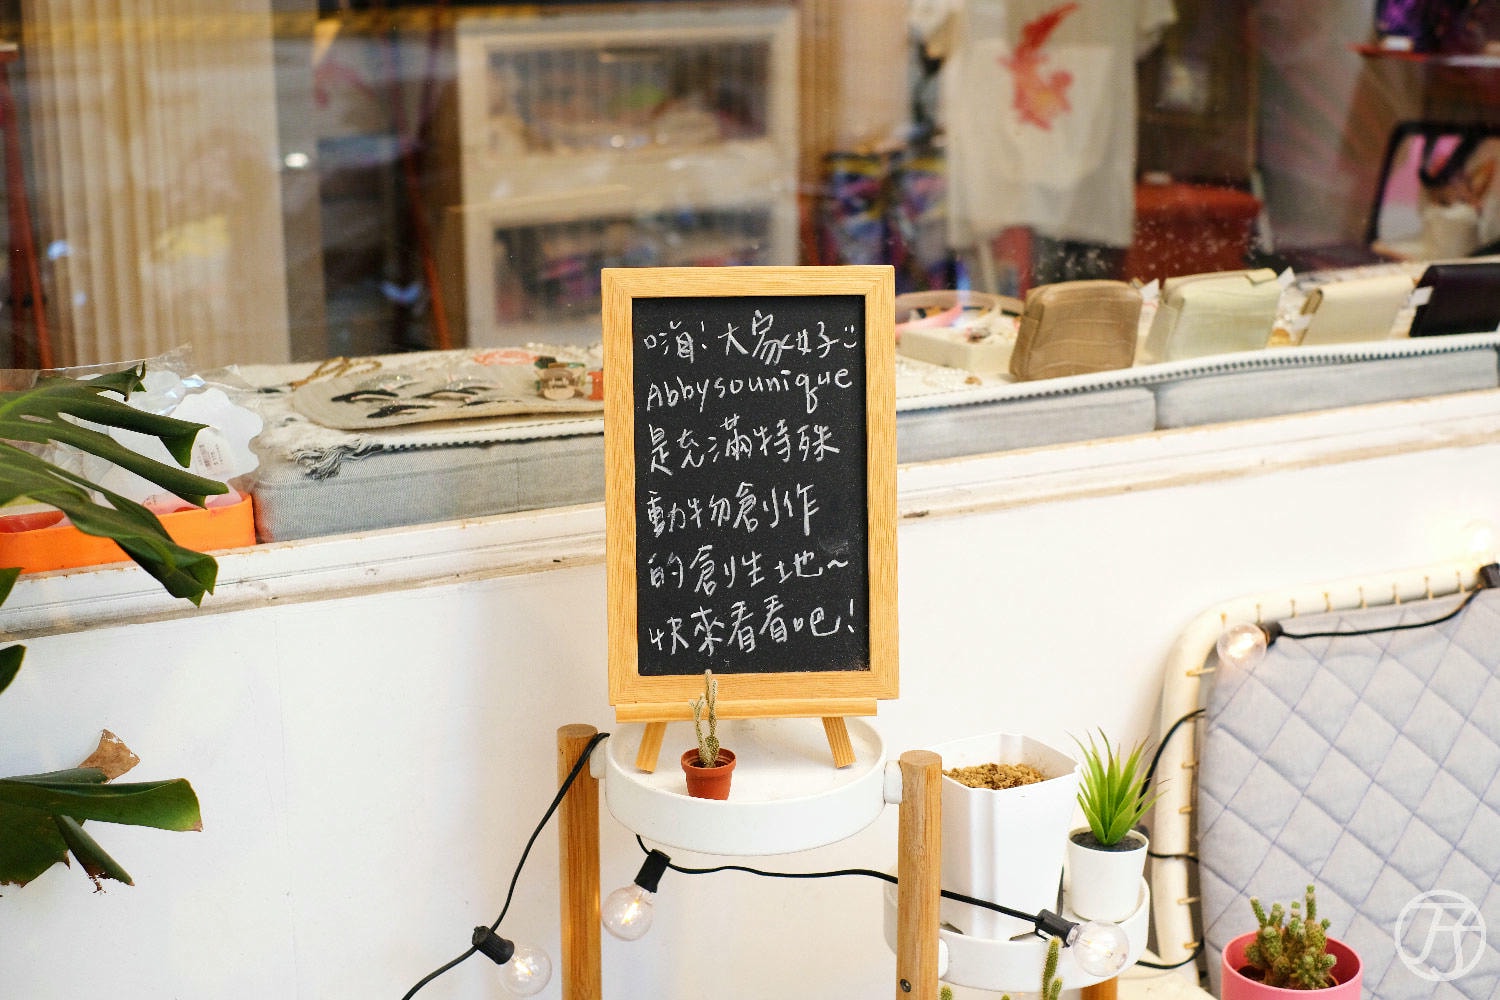 嗨!大家好:)
Abbysounique
是充滿特殊
動物創作
的創生地~
快來看看吧!